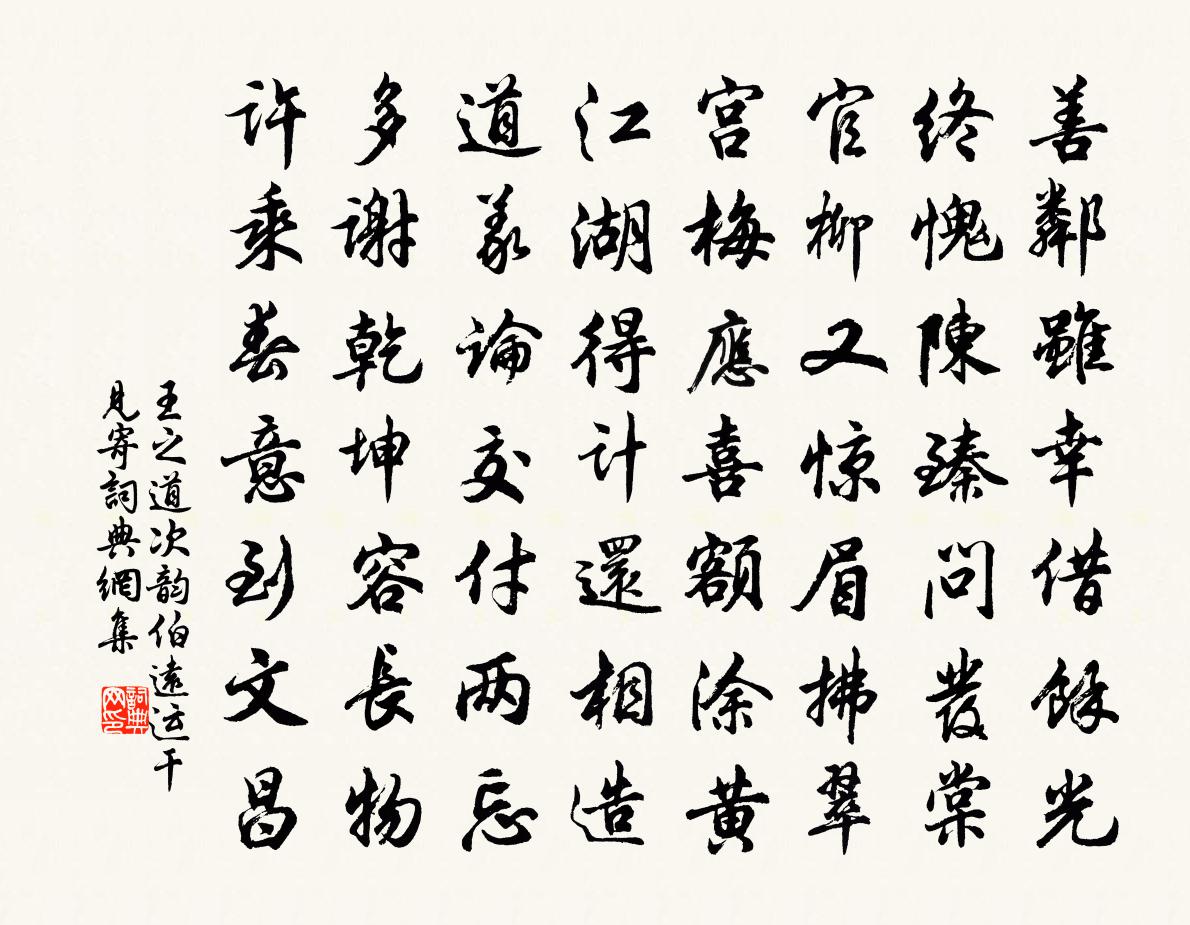 善鄰雖幸借餘光
终愧陳臻問發棠
官柳又惊眉拂翠
宫梅應喜額涂黄
江湖得计還相造
道義論交付两忘
多謝乾坤容長物
许乘春意到文昌
王之道次韵伯遠运干
見寄詞典網集
詞典网印